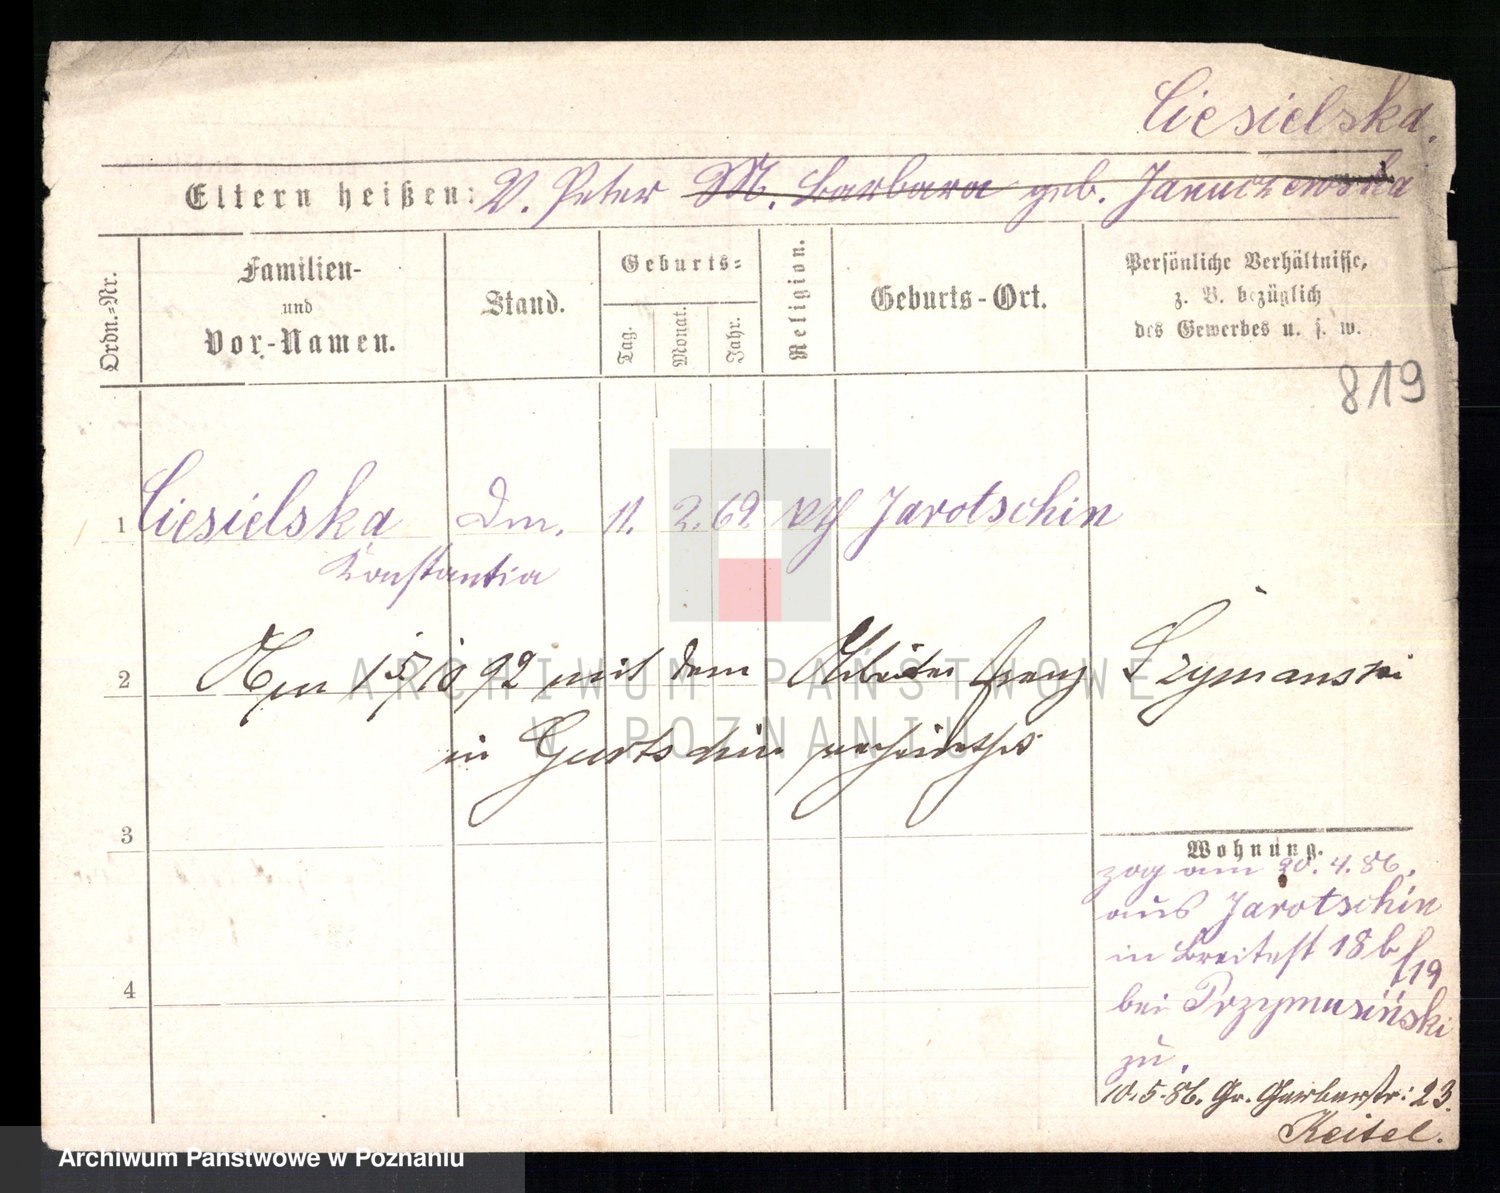 Ciesielska.
Eltern heißen: V. Peter M. Barbara geb. Januczewska
Ordn.-Nr.
Familien-
und
Vor-Namen.
Stand.
Geburts-
Tag.
Monat.
Jahr.
Religion.
Geburts-Ort.
Persönliche Verhältnisse,
z. B. bezüglich
des Gewerbes u. s. w.
819
1 Ciesielska Dm. 11. 2. 69 kth Jarotschin
Konstantia
2 Am 15/10 92 mit dem Arbeiter Franz Szymanski
in Gurtschin verheirathet
3
4
Wohnung.
zog am 20. 4. 86.
aus Jarotschin
in Breitestr 18b/19
bei Przymusiński
zu.
10.5.86. Gr. Gerberstr: 23.
Keitel.
ARCHIWUM PAŃSTWOWE
W POZNANIU
Archiwum Państwowe w Poznaniu